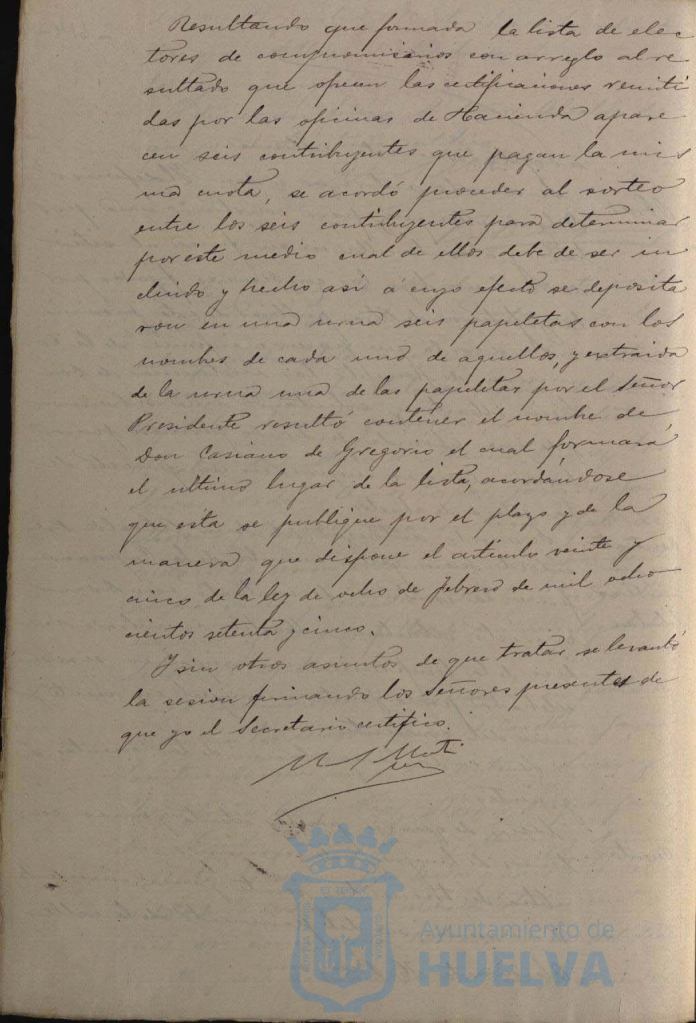 Resultando que formada la lista de elec
tores de compromisarios con arreglo al re
sultado que ofrecen las certificaciones remiti
das por las oficinas de Hacienda apare
cen seis contribuyentes que pagan la mis
ma cuota, se acordó proceder al sorteo
entre los seis contribuyentes para determinar
por éste medio cual de ellos debe de ser in
cluido y hecho así á cuyo efecto se deposita
ron en una urna seis papeletas con los
nombres de cada uno de aquellos, y extraida
de la urna una de las papeletas por el Señor
Presidente resultó contener el nombre de
Don Casiano de Gregorio el cual formará
el ultimo lugar de la lista, acordándose
que esta se publique por el plazo y de la
manera que dispone el artículo veinte y
cinco de la ley de ocho de febrero de mil ocho
cientos setenta y cinco.
Y sin otros asuntos de que tratar se levantó
la sesion firmando los Señores presentes de
que yo el Secretario certifico.
Ayuntamiento de
HUELVA